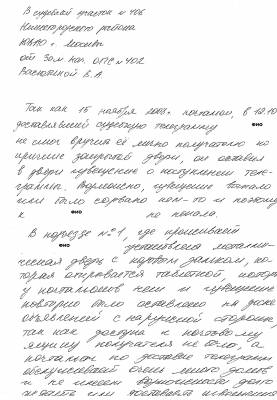 В судебный участок № 406
Нижегородского района
ЮВАО г. Москвы
от Зам. нач. ОПС № 402
Васютиной Е.А
Так как 15 ноября 2008г. почтальон, в 18.10
доставлявший судебную телеграмму
не смог вручить её лично получателю по
причине закрытой двери, он оставил
в двери извещение о поступлении теле-
граммы. Возможно, извещение выпало
или было сорвано кем-то и поэтому
к не попала.
В подъезде №1, где проживает
установлена металли-
ческая дверь с кодовым замком, ко-
торая открывается таблеткой, которой
у почтальонов нет и извещение
повторно было оставлено на доске
объявлений с наружной стороны,
так как доступа к почтовому
ящику получателя не было, а
почтальон по доставке телеграмм
обслуживает очень много домов
и не имеет возможности долго